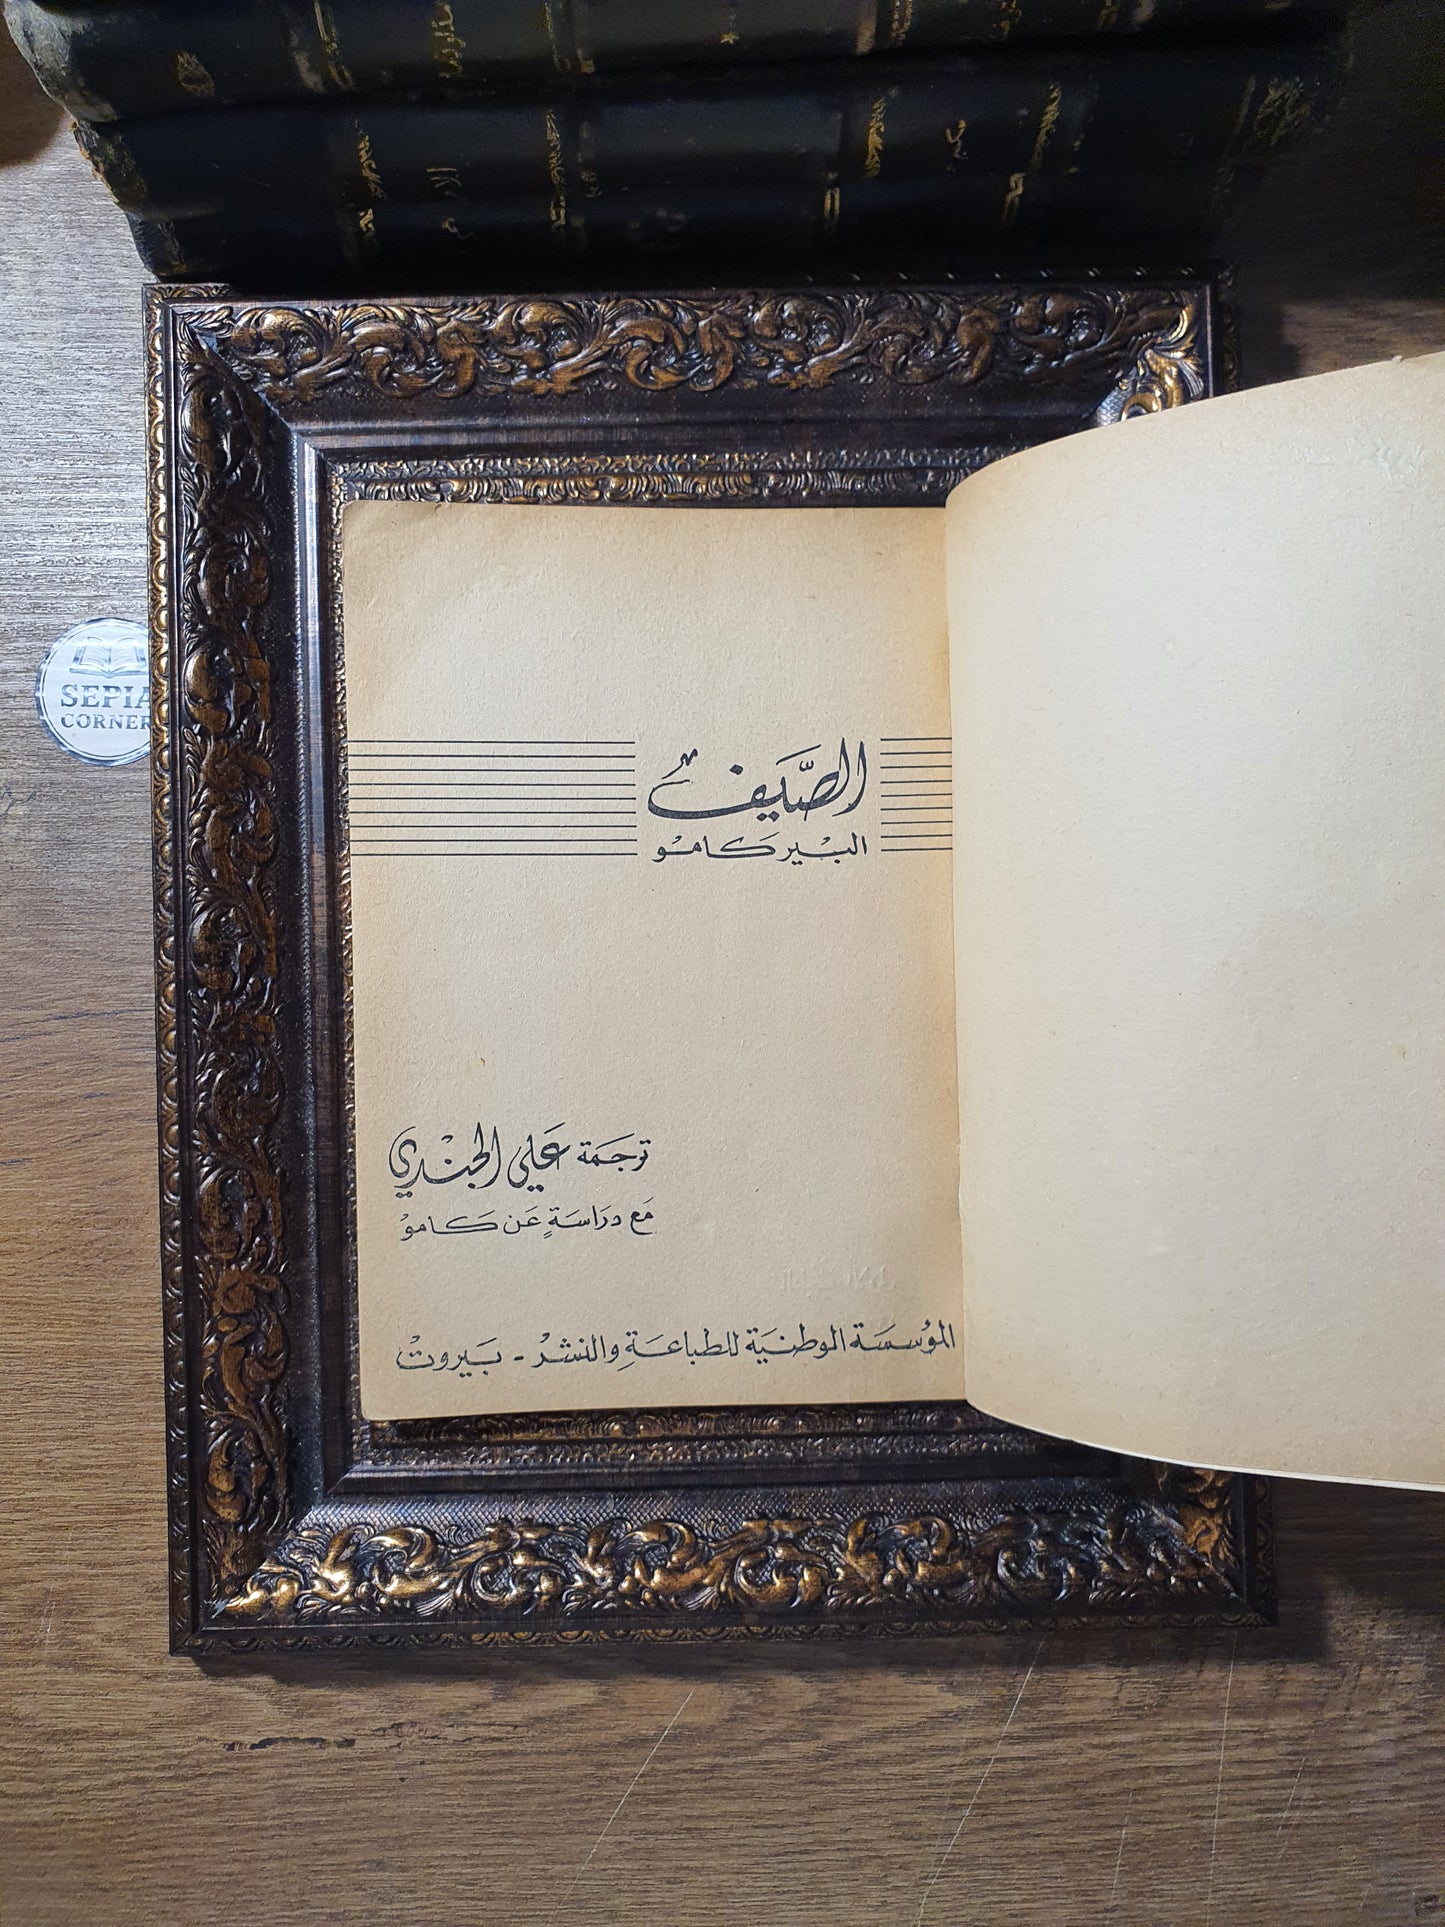 SEPIA
CORNER
الصَّيف
البيْر كَامُو
ترجَمة عَلي الجنْدي
مَع درَاسَةٍ عَن كَامُو
المؤسسَة الوطنيَة للطباعَةِ والنشْر - بَيروتْ